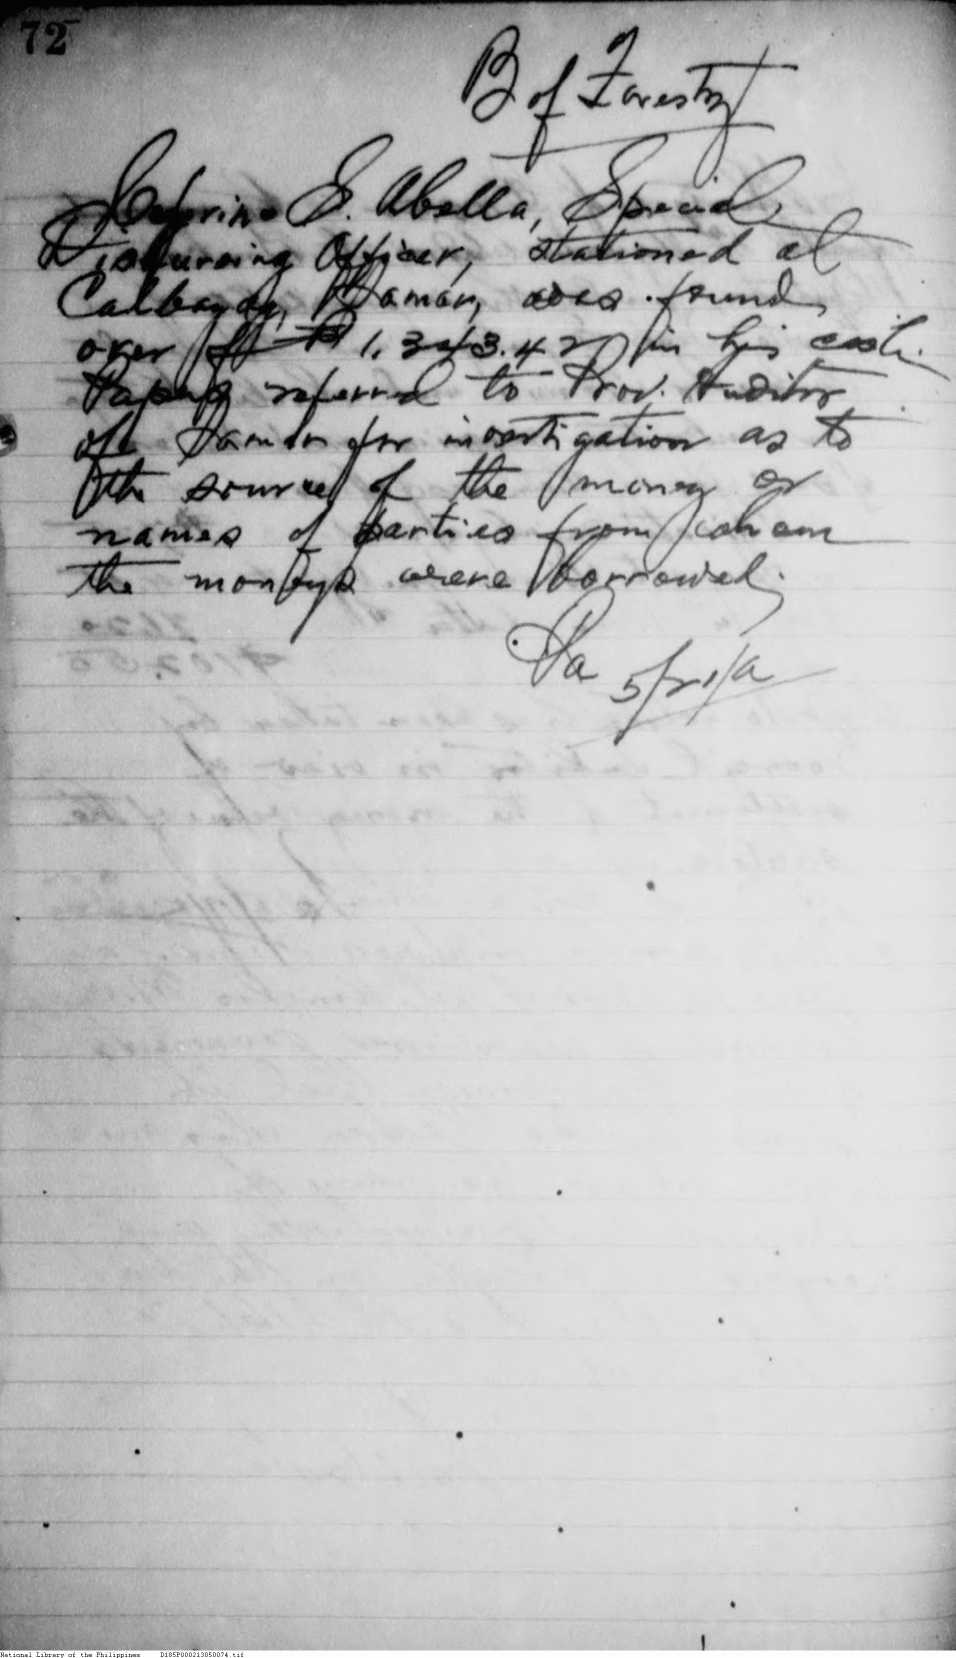 72
B of Forestry
Ceferino S. Abella, Special
Disbursing Officer, stationed at
Calbayog, Samar, was found
over of ₱ 1,343.42 in his cash.
Papers referred to Prov. Auditor
of Samar for investigation as to
the source of the money or
names of parties from whom
the moneys were borrowed.
5/21/
National Library of the Philippines D185P000213050074.tif